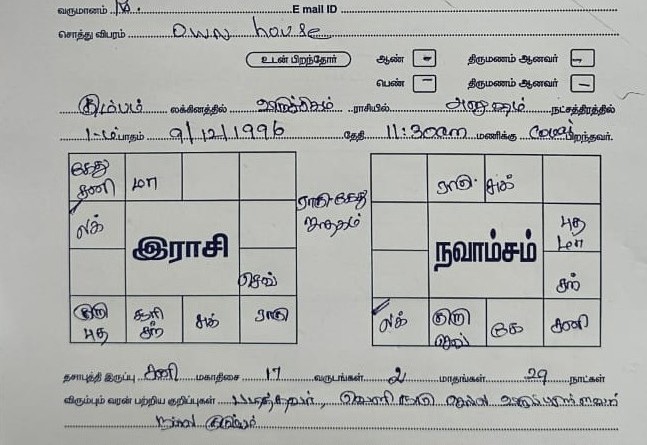 வருமானம் E mail ID
சொத்து விபரம் Own house
உடன் பிறந்தோர் ஆண் - திருமணம் ஆனவர் -
பெண் - திருமணம் ஆனவர் -
கும்பம் லக்கினத்தில் ராசியில் அனுஷம் நட்சத்திரத்தில்
1-ம் பாதம் 9/12/1996 தேதி 11:30am மணிக்கு பிறந்தவர்.
கேது சனி மா
ராகு சுக்
ராகு கேது ஜாதகம்
லக் இராசி
நவாம்சம் புத மா
செவ் சூரி
குரு புத சூரி சந் சுக் ராகு
லக் குரு செவ் கே சனி
தசாபுத்தி இருப்பு சனி மகாதிசை 17 வருடங்கள் 2 மாதங்கள் 29 நாட்கள்
விரும்பும் வரன் பற்றிய குறிப்புகள் படித்தவர், வெளி நாடு
நல்ல குடும்பம்